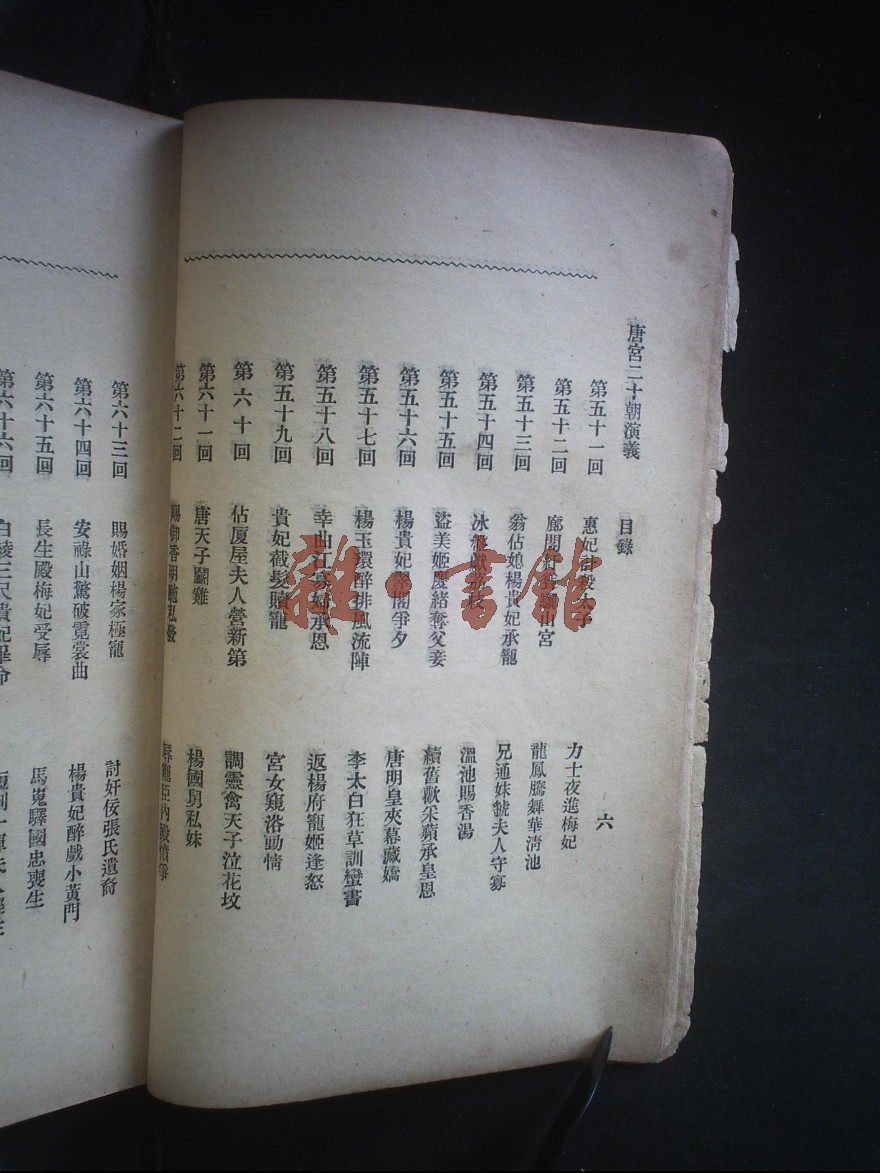 唐宮二十朝演義
目錄
六
第五十一回 惠妃 力士夜進梅妃
第五十二回 山宮 龍鳳騰舞華淸池
第五十三回 翁佔媳楊貴妃承寵 兄通妹虢夫人守寡
第五十四回 冰 溫池賜香湯
第五十五回 盜美姬慶緒奪父妾 續舊歡采蘋承皇恩
第五十六回 楊貴妃翠閣爭夕 唐明皇夾幕藏嬌
第五十七回 楊玉環醉排風流陣 李太白狂草訓蠻書
第五十八回 幸曲江 承恩 返楊府寵姬逢怒
第五十九回 貴妃截髮贖寵 宮女窺浴動情
第六十回 佔厦屋夫人營新第 調靈禽天子泣花墳
第六十一回 唐天子鬬雞 楊國舅私妹
第六十二回 賜御香明駝私發 辱寵臣內殿憤爭
第六十三回 賜婚姻楊家極寵 討奸佞張氏遺裔
第六十四回 安祿山驚破霓裳曲 楊貴妃醉戲小黃門
第六十五回 長生殿梅妃受辱 馬嵬驛國忠喪生
第六十六回 白綾三尺貴妃畢命
雜·書館